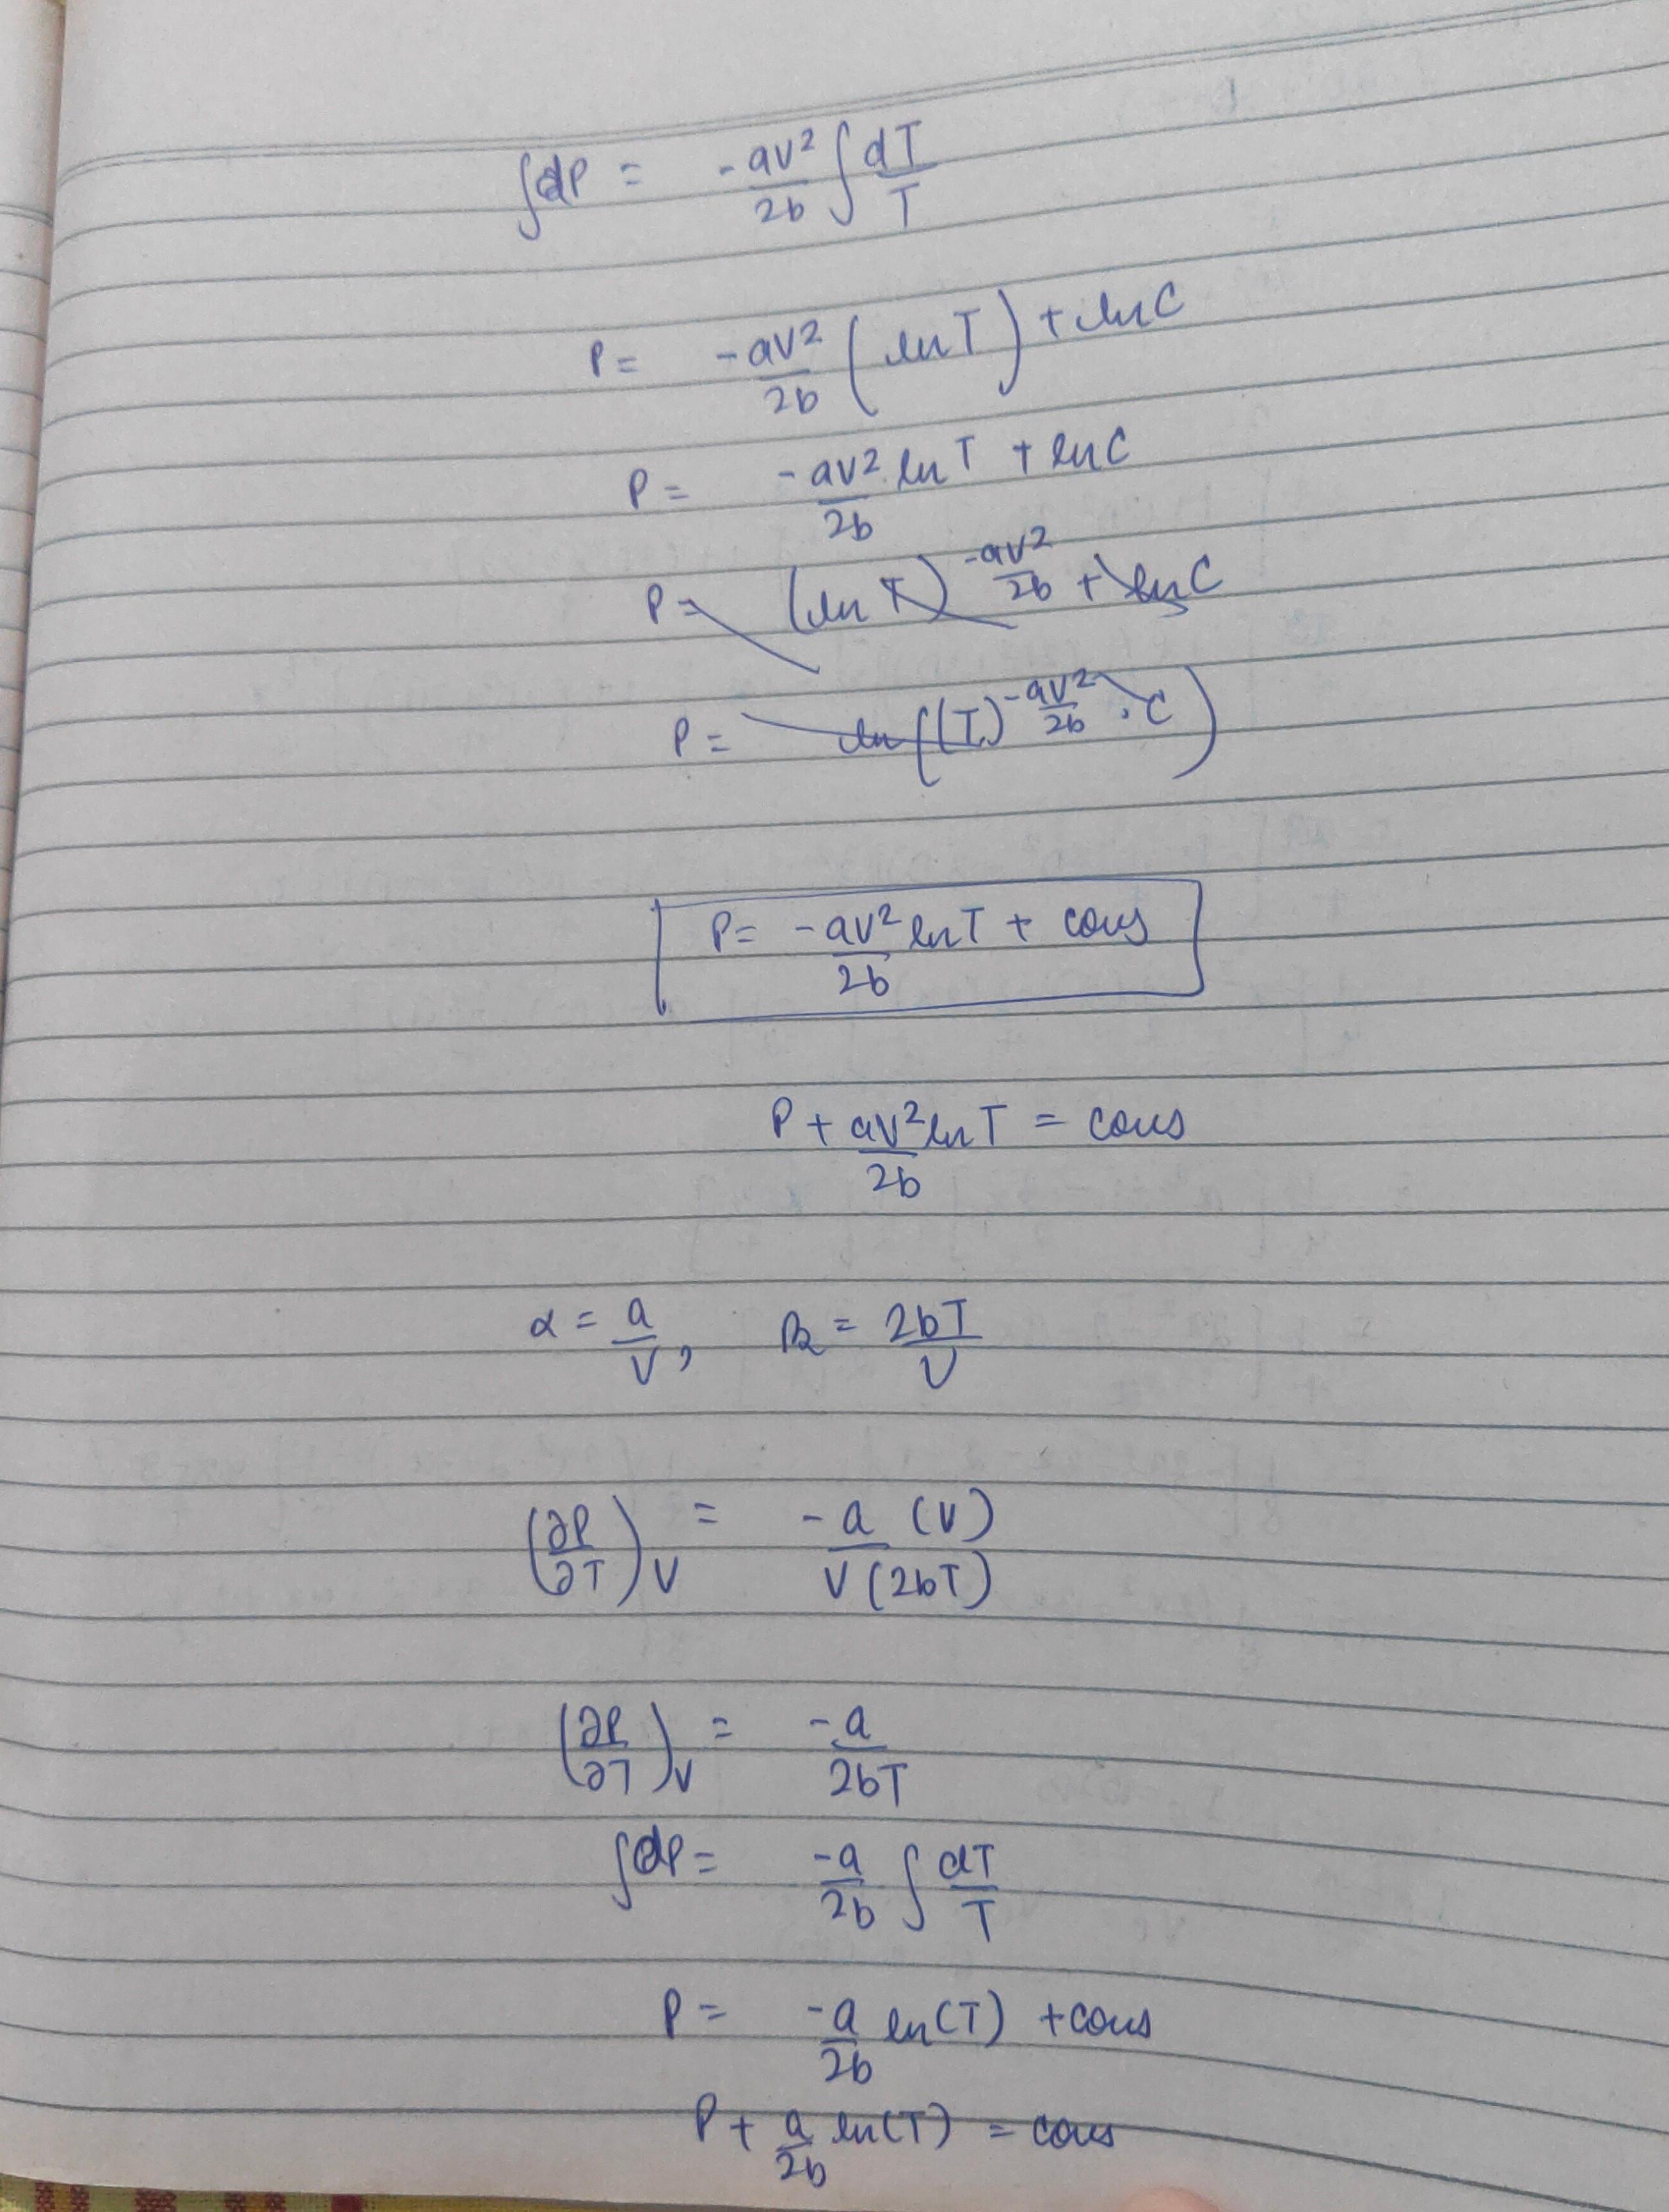 ∫dP = -av²/2b ∫ dT/T
P = -av²/2b (ln T) + ln C
P = -av²/2b ln T + ln C
P = (ln T)^(-av²/2b) + ln C
P = ln((T)^(-av²/2b) · C)
P = -av²/2b ln T + cons
P + av²/2b ln T = cons
α = a/V, β = 2bT/V
(∂P/∂T)_V = -a (V)/V(2bT)
(∂P/∂T)_V = -a/2bT
∫dP = -a/2b ∫ dT/T
P = -a/2b ln(T) + cons
P + a/2b ln(T) = cons